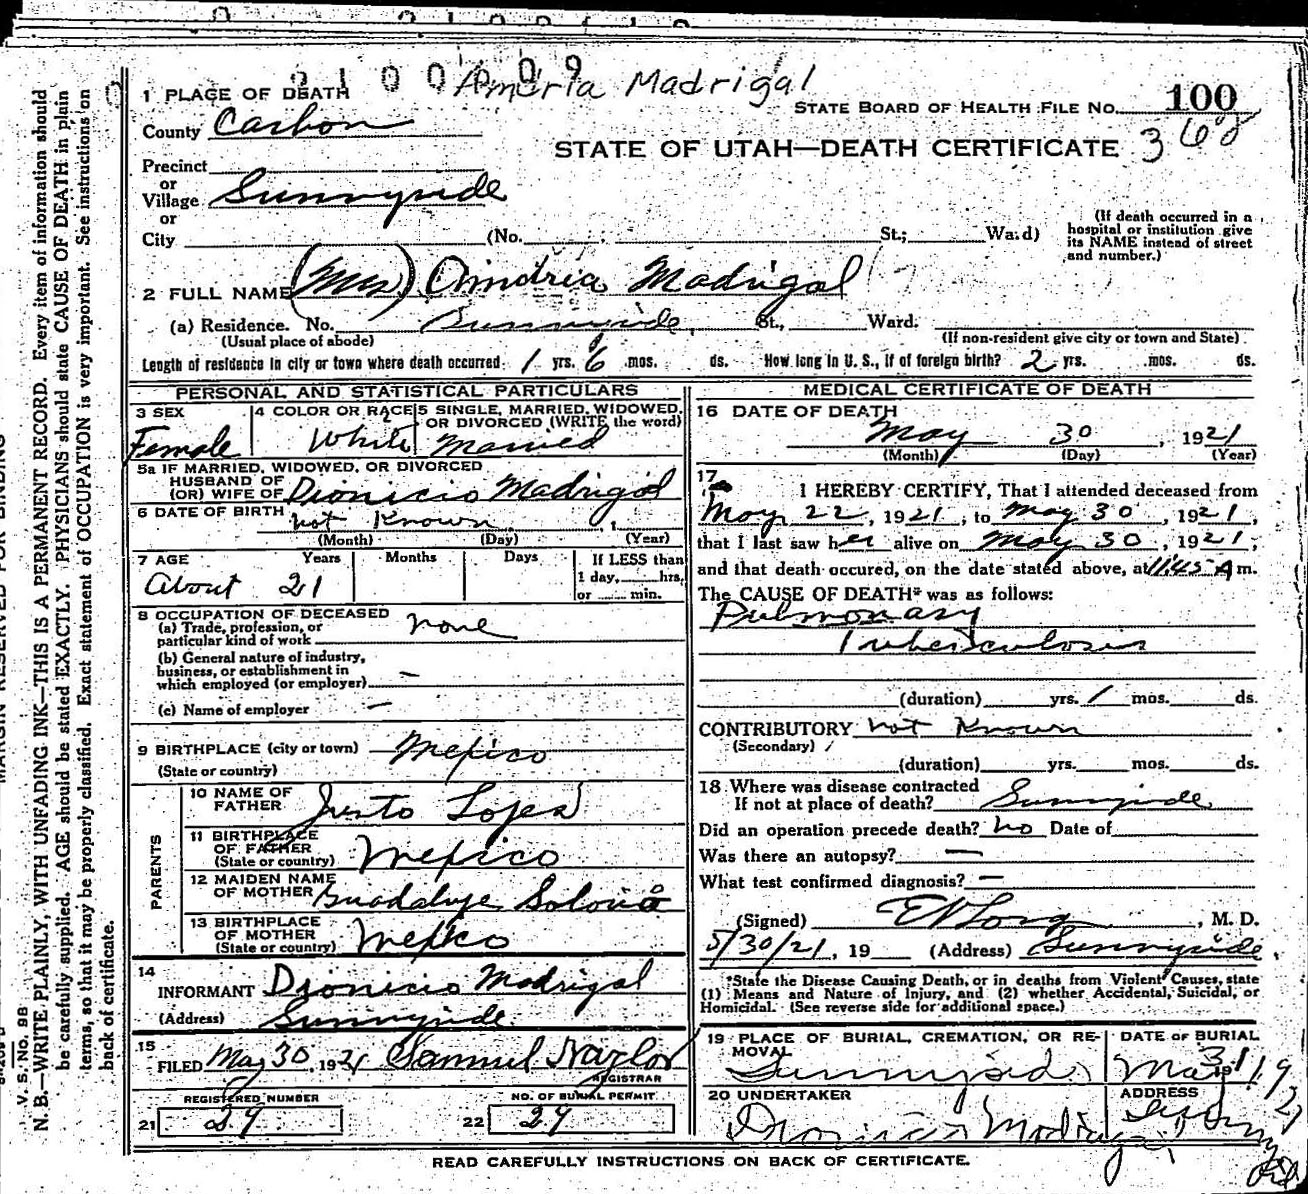 2100009
Ameria Madrigal
1 PLACE OF DEATH
STATE BOARD OF HEALTH FILE NO. 100
County Carbon
STATE OF UTAH—DEATH CERTIFICATE 368
Precinct
or
Village Sunnyside
or
City (No. St.; Ward)
(If death occurred in a hospital or institution give its NAME instead of street and number.)
2 FULL NAME (Mrs) Amdria Madrigal
(a) Residence. No. Sunnyside, St., Ward.
(Usual place of abode) (If non-resident give city or town and State)
Length of residence in city or town where death occurred 1 yrs. 6 mos. ds. How long in U. S., if of foreign birth? 2 yrs. mos. ds.
PERSONAL AND STATISTICAL PARTICULARS
3 SEX Female
4 COLOR OR RACE White
5 SINGLE, MARRIED, WIDOWED, OR DIVORCED (WRITE the word) Married
5a IF MARRIED, WIDOWED, OR DIVORCED
HUSBAND OF
(OR) WIFE OF Dionicio Madrigal
6 DATE OF BIRTH not Known
(Month) (Day) (Year)
7 AGE Years Months Days If LESS than
1 day, hrs.
or min.
About 21
8 OCCUPATION OF DECEASED
(a) Trade, profession, or
particular kind of work none
(b) General nature of industry,
business, or establishment in
which employed (or employer) —
(c) Name of employer —
9 BIRTHPLACE (city or town) Mexico
(State or country)
PARENTS
10 NAME OF
FATHER Justo Lopes
11 BIRTHPLACE
OF FATHER
(State or country) Mexico
12 MAIDEN NAME
OF MOTHER Guadalupe
13 BIRTHPLACE
OF MOTHER
(State or country) Mexico
14
INFORMANT Dionicio Madrigal
(Address) Sunnyside
15
FILED May 30, 1921 Samuel Naylor
REGISTRAR
REGISTERED NUMBER
21 29
NO. OF BURIAL PERMIT
22 29
MEDICAL CERTIFICATE OF DEATH
16 DATE OF DEATH
May 30, 1921
(Month) (Day) (Year)
17
I HEREBY CERTIFY, That I attended deceased from
May 22, 1921, to May 30, 1921,
that I last saw her alive on May 30, 1921,
and that death occured, on the date stated above, at 11:45 A m.
The CAUSE OF DEATH* was as follows:
Pulmonary
Tuberculosis
(duration) yrs. 1 mos. ds.
CONTRIBUTORY not Known
(Secondary)
(duration) yrs. mos. ds.
18 Where was disease contracted
If not at place of death? Sunnyside
Did an operation precede death? no Date of
Was there an autopsy? —
What test confirmed diagnosis? —
(Signed) , M. D.
5/30/21, 19 (Address) Sunnyside.
*State the Disease Causing Death, or in deaths from Violent Causes, state
(1) Means and Nature of Injury, and (2) whether Accidental, Suicidal, or
Homicidal. (See reverse side for additional space.)
19 PLACE OF BURIAL, CREMATION, OR REMOVAL
Sunnyside
DATE OF BURIAL
May 31 1921
20 UNDERTAKER
Dionicio Madrigal
ADDRESS
READ CAREFULLY INSTRUCTIONS ON BACK OF CERTIFICATE.
MARGIN RESERVED FOR BINDING
V. S. No. 9B
N. B.—WRITE PLAINLY, WITH UNFADING INK—THIS IS A PERMANENT RECORD. Every item of information should
be carefully supplied. AGE should be stated EXACTLY. PHYSICIANS should state CAUSE OF DEATH in plain
terms, so that it may be properly classified. Exact statement of OCCUPATION is very important. See instructions on
back of certificate.